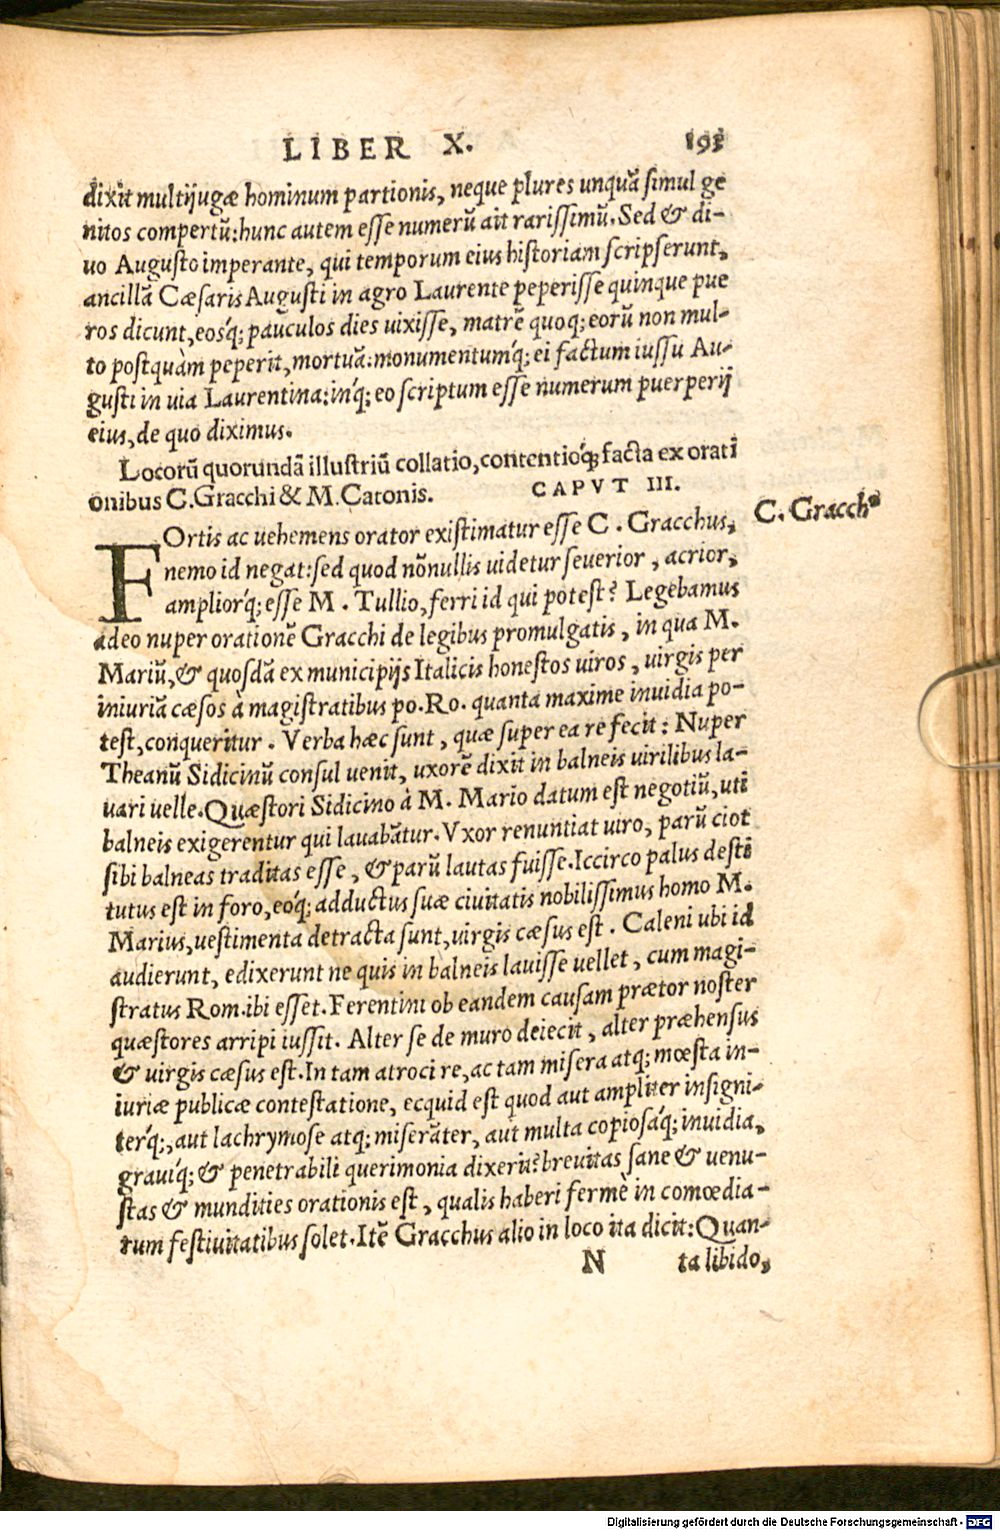 LIBER X. 193
dixit multijugæ hominum partionis, neque plures unquã simul ge
nitos compertũ: hunc autem esse numerũ ait rarissimũ. Sed & di-
uo Augusto imperante, qui temporum eius historiam scripserunt,
ancillã Cæsaris Augusti in agro Laurente peperisse quinque pue
ros dicunt, eosq́; pauculos dies uixisse, matrẽ quoq; eorũ non mul-
to postquàm peperit, mortuã: monumentumq́; ei factum iussu Au-
gusti in uia Laurentina: inq́; eo scriptum esse numerum puerperij
eius, de quo diximus.
Locorũ quorundã illustriũ collatio, contentioq́; facta ex orati
onibus C. Gracchi & M. Catonis. CAPVT III.
C. Gracch⁹
FOrtis ac uehemens orator existimatur esse C. Gracchus,
nemo id negat: sed quod nõnullis uidetur seuerior, acrior,
ampliorq́; esse M. Tullio, ferri id qui potest? Legebamus
adeo nuper orationẽ Gracchi de legibus promulgatis, in qua M.
Mariũ, & quosdã ex municipijs Italicis honestos uiros, uirgis per
iniuriã cæsos à magistratibus po. Ro. quanta maxime inuidia po-
test, conqueritur. Verba hæc sunt, quæ super ea re fecit: Nuper
Theanũ Sidicinũ consul uenit, uxorẽ dixit in balneis uirilibus la-
uari uelle. Quæstori Sidicino à M. Mario datum est negotiũ, uti
balneis exigerentur qui lauabãtur. Vxor renuntiat uiro, parũ ciot
sibi balneas traditas esse, & parũ lautas fuisse. Iccirco palus desti
tutus est in foro, eoq́; adductus suæ ciuitatis nobilissimus homo M.
Marius, uestimenta detracta sunt, uirgis cæsus est. Caleni ubi id
audierunt, edixerunt ne quis in balneis lauisse uellet, cum magi-
stratus Rom. ibi esset. Ferentini ob eandem causam prætor noster
quæstores arripi iussit. Alter se de muro deiecit, alter præhensus
& uirgis cæsus est. In tam atroci re, ac tam misera atq; mœsta in-
iuriæ publicæ contestatione, ecquid est quod aut ampliter insigni-
terq́;, aut lachrymose atq; miserãter, aut multa copiosaq́; inuidia,
grauiq́; & penetrabili querimonia dixerit? breuitas sane & uenu-
stas & mundities orationis est, qualis haberi fermè in comœdia-
rum festiuitatibus solet. Itẽ Gracchus alio in loco ita dicit: Quan-
N ta libido,
Digitalisierung gefördert durch die Deutsche Forschungsgemeinschaft - DFG